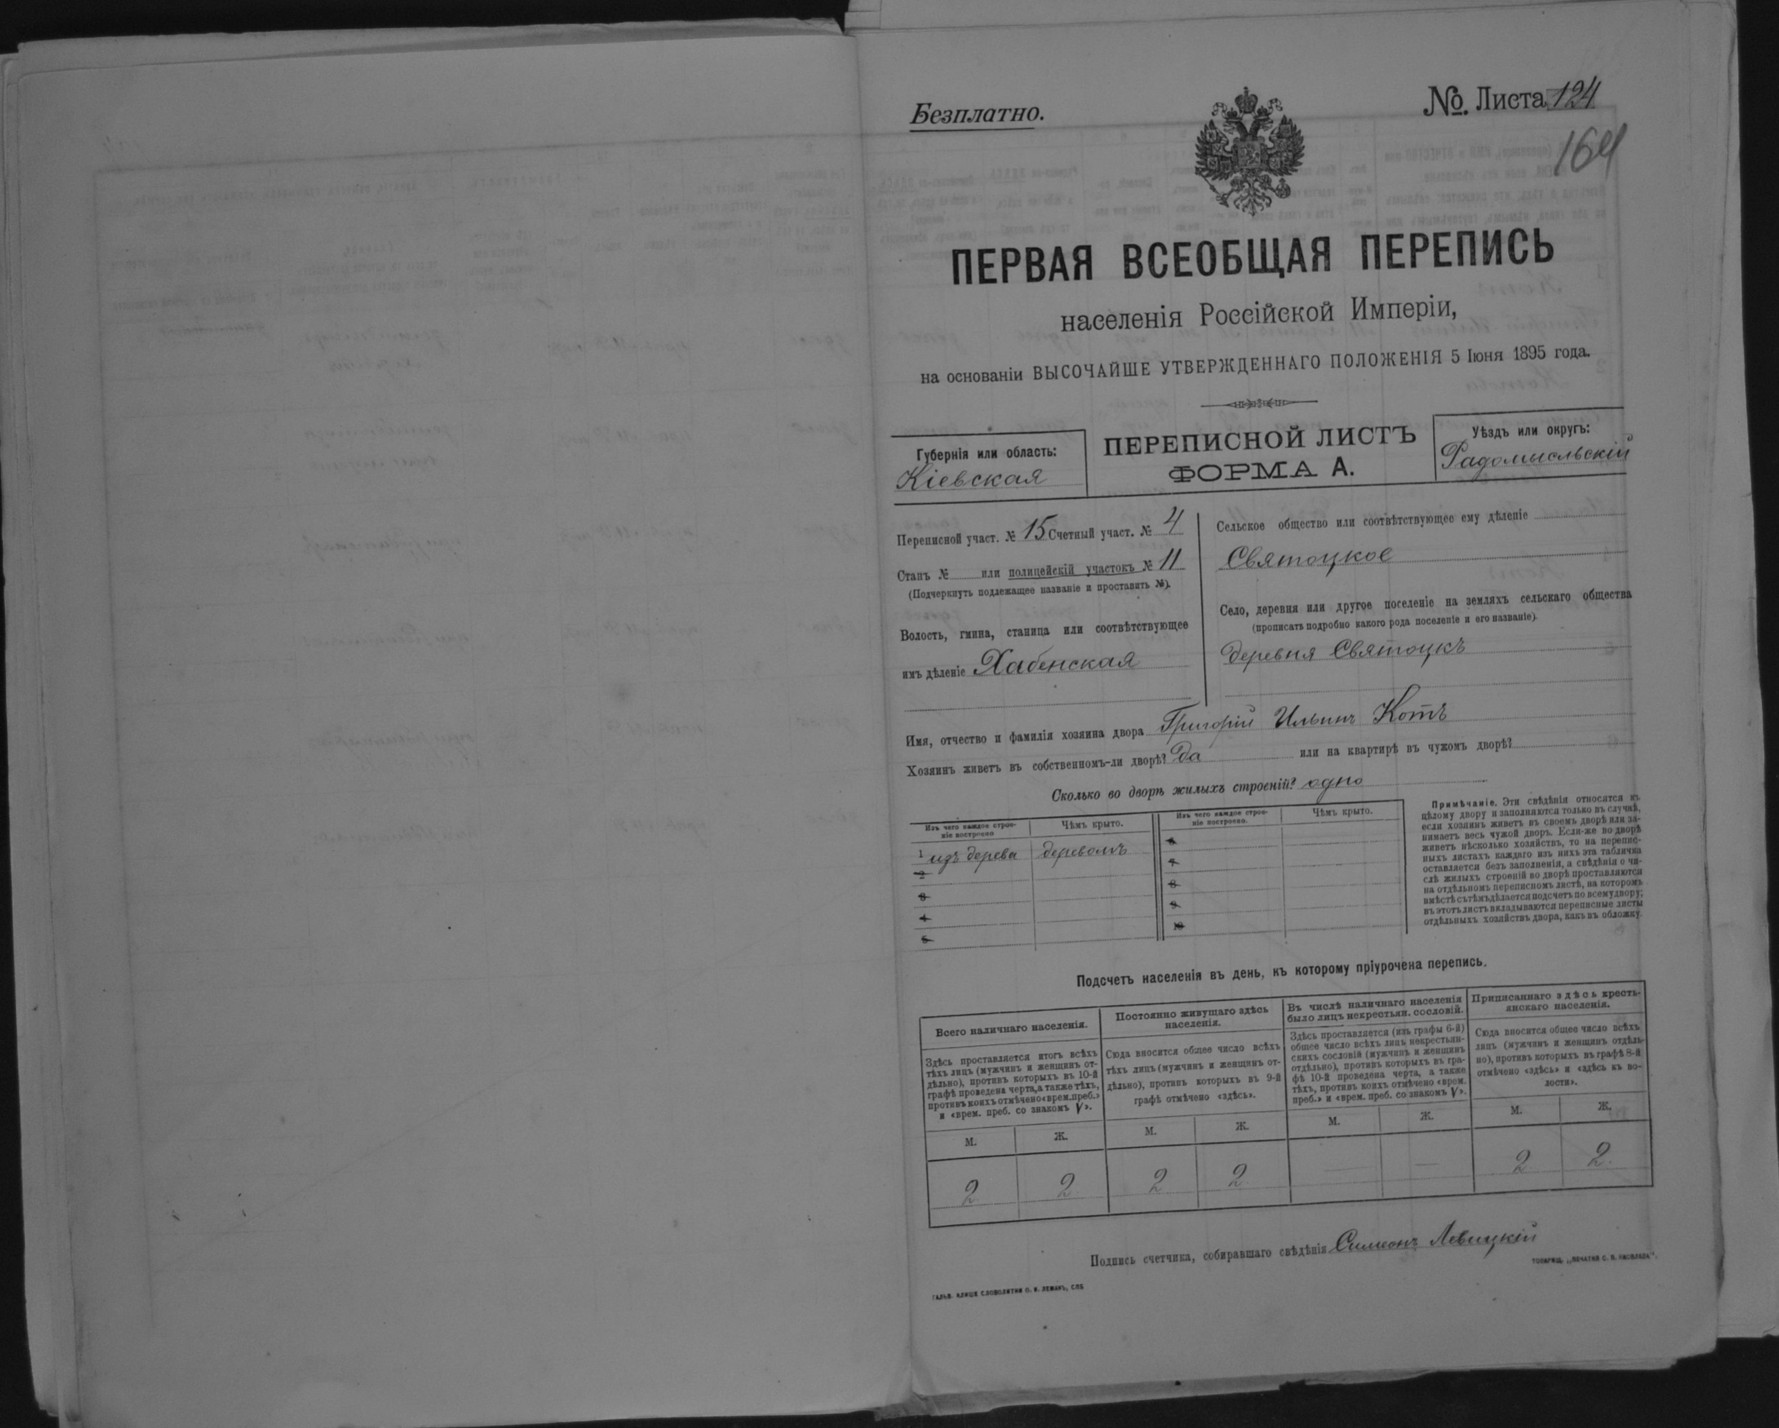 Безплатно.
№. Листа 124
164
ПЕРВАЯ ВСЕОБЩАЯ ПЕРЕПИСЬ
населенія Россійской Имперіи,
на основаніи ВЫСОЧАЙШЕ УТВЕРЖДЕННАГО ПОЛОЖЕНІЯ 5 Іюня 1895 года.
Губернія или область:
Кіевская
ПЕРЕПИСНОЙ ЛИСТЪ
ФОРМА А.
Уѣздъ или округъ:
Радомысльскій
Переписной участ. № 15 Счетный участ. № 4
Станъ № или полицейскій участокъ № 11
(Подчеркнуть подлежащее названіе и проставить №).
Волость, гмина, станица или соотвѣтствующее
имъ дѣленіе Хабенская
Сельское общество или соотвѣтствующее ему дѣленіе
Святоцкое
Село, деревня или другое поселеніе на земляхъ сельскаго общества
(прописать подробно какого рода поселеніе и его названіе).
деревня Святоцкъ
Имя, отчество и фамилія хозяина двора Григорій Ильинъ Котъ
Хозяинъ живетъ въ собственномъ-ли дворѣ? Да или на квартирѣ въ чужомъ дворѣ?
Сколько во дворѣ жилыхъ строеній? одно
Изъ чего каждое строе-
ніе построено
Чѣмъ крыто.
1 изъ дерева деревомъ
2
3
4
5
Изъ чего каждое строе-
ніе построено.
Чѣмъ крыто.
6
7
8
9
10
Примѣчаніе. Эти свѣдѣнія относятся къ
цѣлому двору и заполняются только въ случаѣ,
если хозяинъ живетъ въ своемъ дворѣ или за-
нимаетъ весь чужой дворъ. Если-же во дворѣ
живетъ нѣсколько хозяйствъ, то на перепис-
ныхъ листахъ каждаго изъ нихъ эта табличка
оставляется безъ заполненія, а свѣдѣнія о чи-
слѣ жилыхъ строеній во дворѣ проставляются
на отдѣльномъ переписномъ листѣ, на которомъ
вмѣстѣ съ тѣмъ дѣлается подсчетъ по всему двору;
въ этотъ листъ вкладываются переписные листы
отдѣльныхъ хозяйствъ двора, какъ въ обложку.
Подсчетъ населенія въ день, къ которому пріурочена перепись.
Всего наличнаго населенія.
Здѣсь проставляется итогъ всѣхъ
тѣхъ лицъ (мужчинъ и женщинъ от-
дѣльно), противъ которыхъ въ 10-й
графѣ проведена черта, а также тѣхъ,
противъ коихъ отмѣчено «врем. преб.»
и «врем. преб. со знакомъ V».
М. Ж.
2 2
Постоянно живущаго здѣсь
населенія.
Сюда вносится общее число всѣхъ
тѣхъ лицъ (мужчинъ и женщинъ от-
дѣльно), противъ которыхъ въ 9-й
графѣ отмѣчено «здѣсь».
М. Ж.
2 2
Въ числѣ наличнаго населенія
было лицъ некрестьян. сословій.
Здѣсь проставляется (изъ графы 6-й)
общее число всѣхъ лицъ некрестьян-
скихъ сословій (мужчинъ и женщинъ
отдѣльно), противъ которыхъ въ гра-
фѣ 10-й проведена черта, а также
тѣхъ, противъ коихъ отмѣчено «врем.
преб.» и «врем. преб. со знакомъ V».
М. Ж.
— —
Приписаннаго здѣсь кресть-
янскаго населенія.
Сюда вносится общее число всѣхъ
лицъ (мужчинъ и женщинъ отдѣль-
но), противъ которыхъ въ графѣ 8-й
отмѣчено «здѣсь» и «здѣсь въ во-
лости».
М. Ж.
2 2
Подпись счетчика, собиравшаго свѣдѣнія Симеонъ Левицкій
ГАЛЬВ. КЛИШЕ СЛОВОЛИТНИ О. И. ЛЕМАНЪ, СПБ
ТОВАРИЩ. „ПЕЧАТНЯ С. П. ЯКОВЛЕВА".